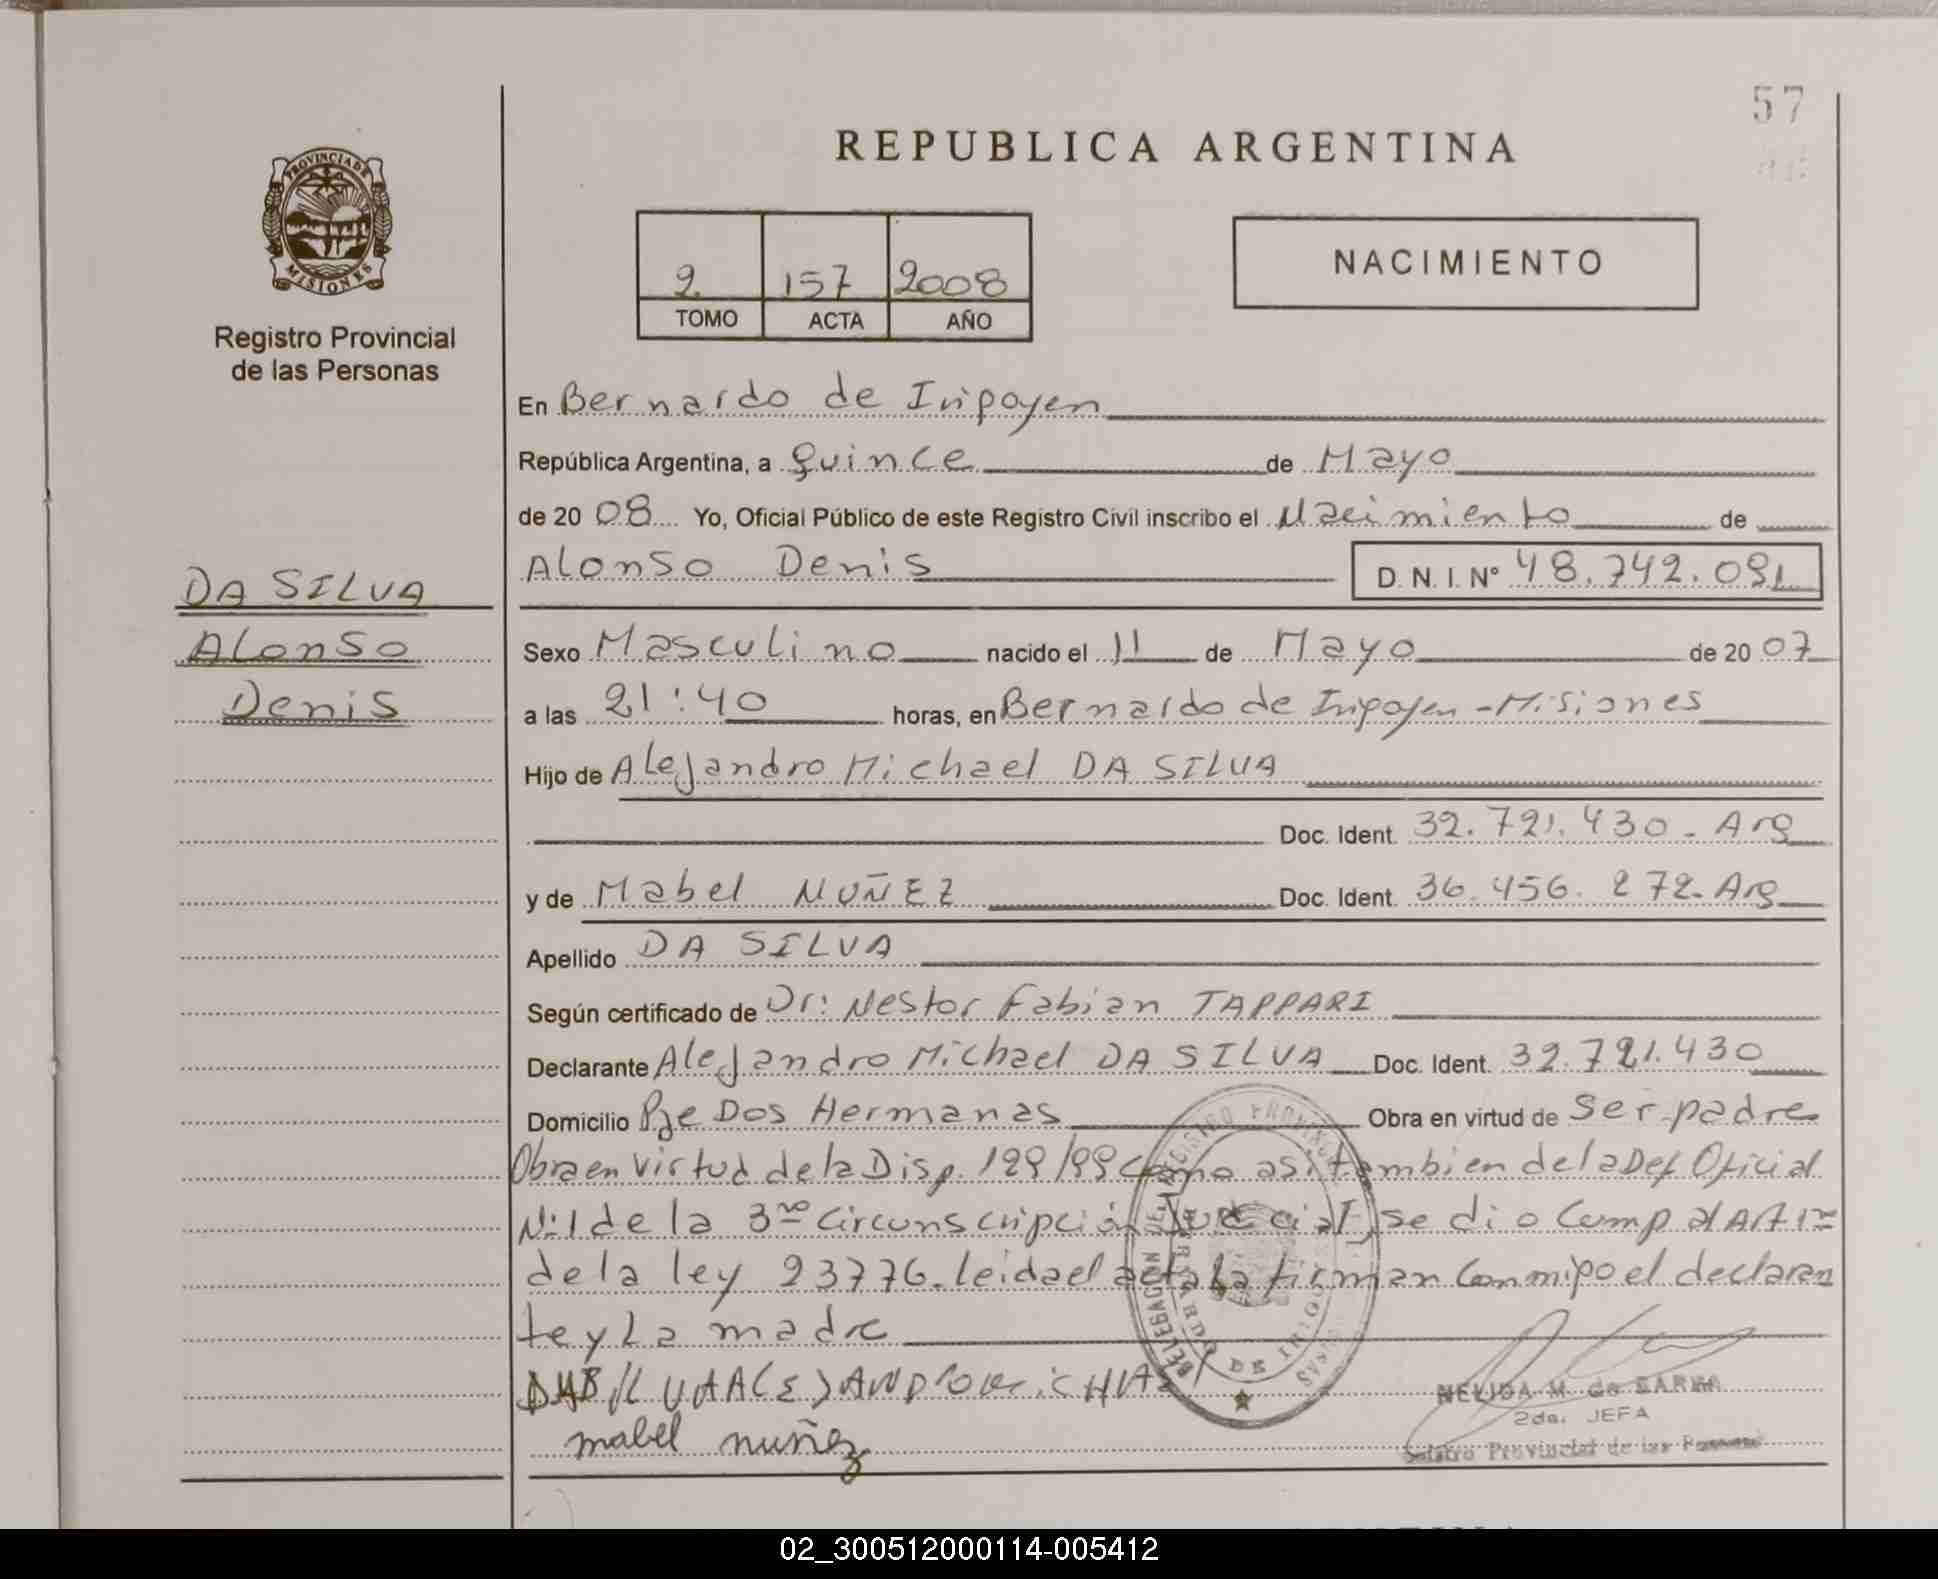 57
REPUBLICA ARGENTINA
PROVINCIA DE MISIONES
Registro Provincial
de las Personas
2 157 2008
TOMO ACTA AÑO
NACIMIENTO
En Bernardo de Iripoyen
República Argentina, a quince de Mayo
de 20 08 Yo, Oficial Público de este Registro Civil inscribo el Nacimiento de
DA SILVA
Alonso
Denis
Alonso Denis D. N. I. Nº 48.742.091
Sexo Masculino nacido el 11 de Mayo de 20 07
a las 21:40 horas, en Bernardo de Iripoyen - Misiones
Hijo de Alejandro Michael DA SILVA
Doc. Ident. 32.721.430 - Arg
y de Mabel NUÑEZ Doc. Ident. 36.456.272 - Arg
Apellido DA SILVA
Según certificado de Dr: Nestor Fabian TAPPARI
Declarante Alejandro Michael DA SILVA Doc. Ident. 32.721.430
Domicilio Pje Dos Hermanas Obra en virtud de ser padre
Obra en virtud de la Disp. 199/99 como asi tambien de la Def Oficial
Nº 1 de la 3ra Circunscripción Judicial, se dio Cump al Art 1ro
de la ley 23776. Leida el acta la firman conmigo el declaran
te y La madre
mabel nuñez
NELIDA M. de
2da. JEFA
Registro Provincial de las Personas
DELEGACION DEL REGISTRO PROVINCIAL DE LAS PERSONAS
BERNARDO DE IRIGOYEN
02_300512000114-005412